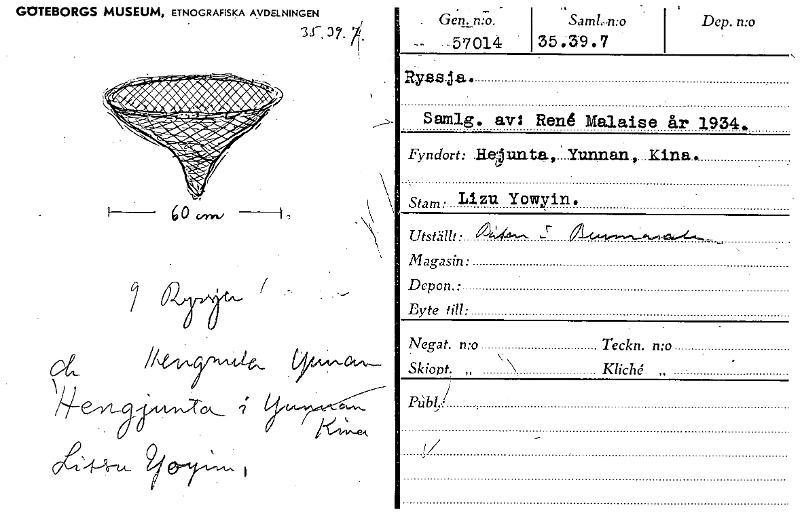 GÖTEBORGS MUSEUM, ETNOGRAFISKA AVDELNINGEN
35.39.7.
60 cm
9 Ryssja
Hengmila Yunan
Hengjunta i Yunnan
Kina
Lissu Yoyin,
Gen. n:o. Saml. n:o Dep. n:o
57014 35.39.7
Ryssja.
Samlg. av: René Malaise år 1934.
Fyndort: Hejunta, Yunnan, Kina.
Stam: Lizu Yowyin.
Utställt:
Magasin:
Depon.:
Byte till:
Negat. n:o Teckn. n:o
Skiopt. „ Kliché „
Publ.: